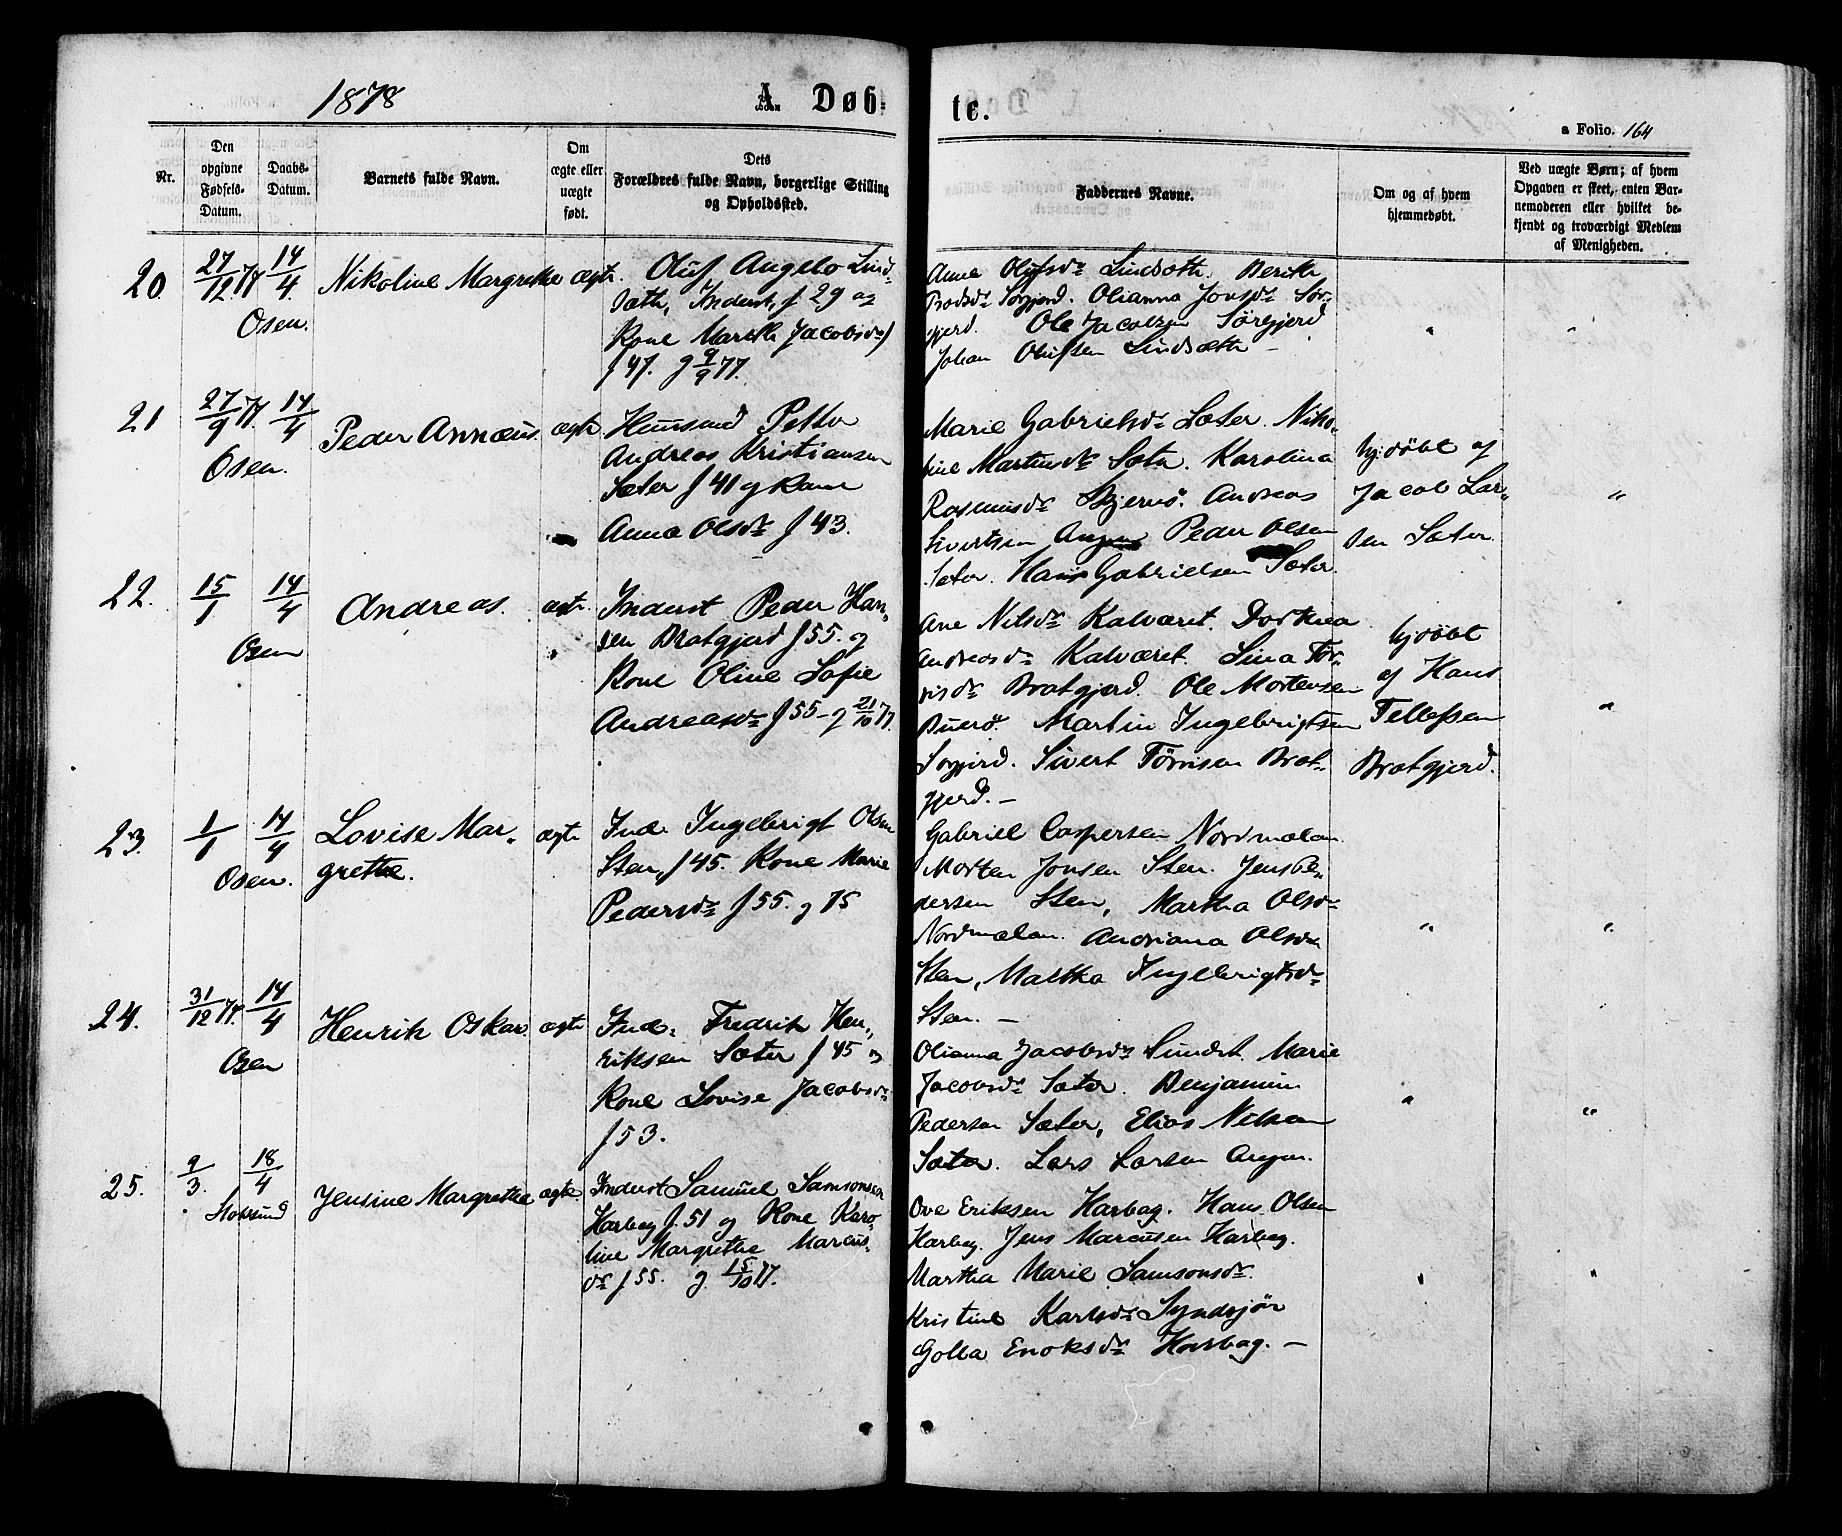 1878
A. Døb-
te.
a Folio. 164
Nr.
Den opgivne Fødsels-Datum.
Daabs-Datum.
Barnets fulde Navn.
Om ægte eller uægte født.
Dets Forældres fulde Navn, borgerlige Stilling og Opholdssted.
Faddernes Navne.
Om og af hvem hjemmedøbt.
Ved uægte Børn; af hvem Opgaven er skeet, enten Barnemoderen eller hvilket bekjendt og troværdigt Medlem af Menigheden.
20. 27/12 77. 14/4. Osen.
Nikoline Margrethe ægte.
Oluf Angelo Lind-
sæth, Inderst, f 29 og
Kone Marith Jacobsdr
f 47. g 9/9 77.
Anne Olufsdr Lindsæth. Berith
Sørgjerd. Olianna Jonsdr Sør-
gjerd. Ole Jacobsen Sørgjerd
Johan Olufsen Lindsæth –
"
"
21 27/9 77. 14/4 Osen.
Peder Annæus. ægte
Huusmd Petter
Andreas Kristiansen
Sæter f 41 og Kone
Anna Olsdr f 43.
Marie Gabrielsdr Sæter. Niko-
line Martinsdr Sæter. Karolina
Rasmusdr Skjervø. Andreas
Sivertsen Angen Peder Olsen
Sæter. Hans Gabrielsen Sæter.
hjdøbt af
Jacob Lar-
sen Sæter.
"
22. 15/1 14/4 Osen
Andreas. ægte.
Inderst Peder Han-
sen Bratgjerd f 55. og
Kone Oline Sofie
Andreasdr f 55 – g 21/10 77.
Ane Nilsdr Kalværet. Dorthea
Andreasdr Kalværet. Lina Tør-
risdr Bratgjerd. Ole Mortensen
Buerø. Martin Ingebrigtsen
Sørgjerd. Sivert Tørrisen Brat-
gjerd. –
hjdøbt
af Hans
Tellefsen
Bratgjerd.
"
23. 1/1 14/4 Osen.
Lovise Mar-
grethe. ægte
Ind. Ingebrigt Olsen
Sten, f 45. Kone Marie
Pedersdr f 55. g 75
Gabriel Caspersen Nordmelan
Morten Jonsen Sten. Jens Pe-
dersen Sten, Martha Olsdr
Nordmelan. Andriana Olsdr
Sten, Martha Ingebrigtsdr
Sten. –
"
"
24. 31/12 77. 14/4 Osen
Henrik Oskar. ægte
Ind. Fredrik Hen-
riksen Sæter f 45 og
Kone Lovise Jacobsdr
f 53.
Olianna Jacobsdr Sundet. Marie
Jacobsdr Sæter. Benjamin
Pedersen Sæter, Elias Nilsen
Sæter. Lars Larsen Angen.
"
"
25. 9/3. 18/4 Stoksund
Jensine Margrethe ægte
Inderst Samuel Samsonsen
Harbag f. 51 og Kone Karo-
line Margrethe Marcus-
dr f 55. g. 15/10 77.
Ove Eriksen Harbag. Hans Olsen
Harbag. Jens Marcusen Harbag.
Martha Marie Samsonsdr.
Kristine Karlsdr Syndsjør
Golla Enoksdr Harbag. –
"
"